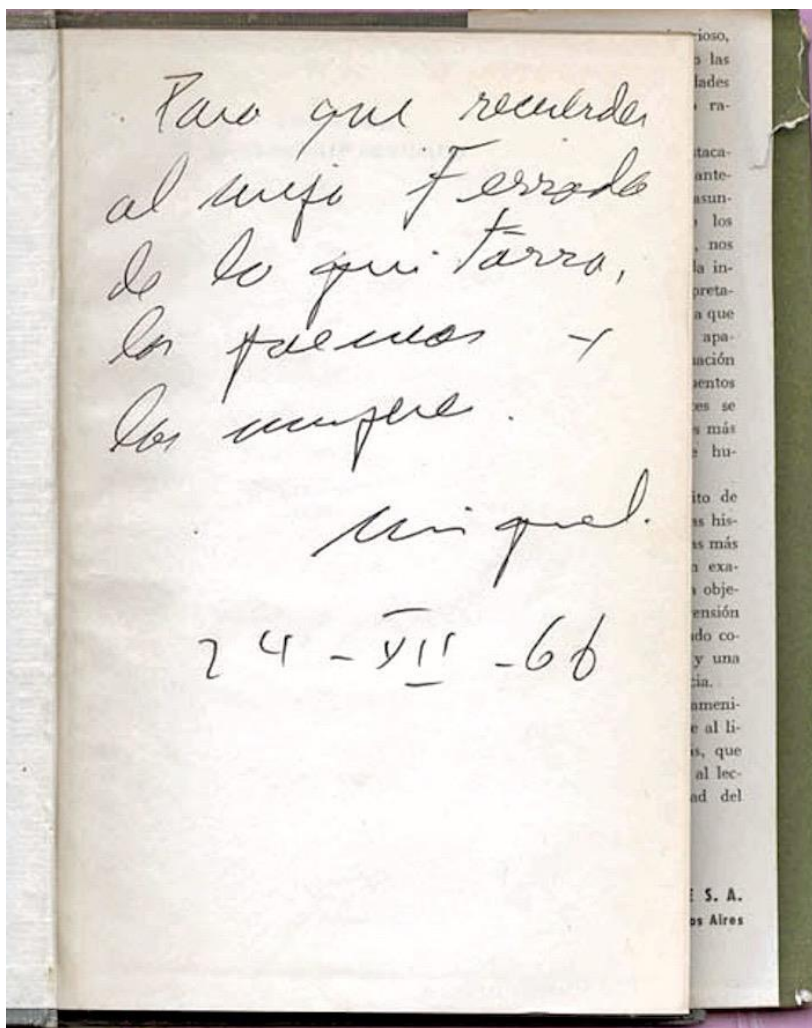 Para que recuerdes
al viejo Ferrada
de la guitarra,
los poemas y
las mujeres.
Miguel.
24-XII-66
cioso,
las
dades
ra-
staca-
ante-
asun-
los
, nos
la in-
preta-
a que
apa-
ación
entos
es se
más
hu-
ito de
as his-
s más
exa-
obje-
ensión
do co-
y una
cia.
ameni-
e al li-
s, que
al lec-
ad del
E S. A.
os Aires